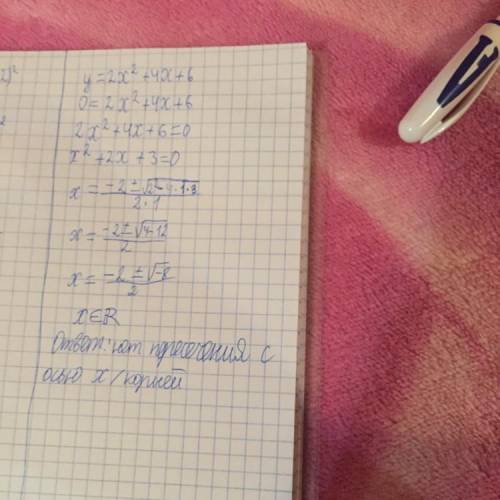 2)²
2
y=2x²+4x+6
0=2x²+4x+6
2x²+4x+6=0
x²+2x+3=0
x=\frac{-2±\sqrt{2²-4·1·3}}{2·1}
x=\frac{-2±\sqrt{4-12}}{2}
x=\frac{-2±\sqrt{-8}}{2}
x∈ℝ
Ответ: нет пересечения с
осью x/корней